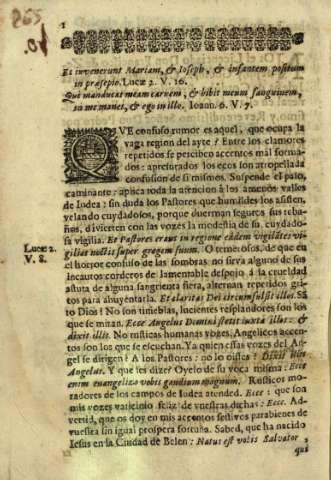 1
Et invenerunt Mariam, & Ioseph, & infantem positum
in præsepio. Lucæ 2. V. 16.
Qui manducat meam carnem, & bibit meum sanguinem,
in me manet, & ego in illo. Ioann. 6. V. 7.
QVE confuso rumor es aquel, que ocupa la
vaga region del ayre? Entre los clamores
repetidos se perciben accentos mal forma-
dos: apresurados los ecos son atropella la
confusion de si mismos. Suspende el paso,
caminante: aplica toda la atencion à los amenos valles
de Iudea: sin duda los Pastores que humildes los assisten,
velando cuydadosos, porque duerman seguros sus reba-
ños, divierten con las vozes la modestia de su cuydado-
sa vigilia. Et Pastores erant in regione eadem vigilātes vi-
gilias noctis super gregem suum. O temerosos, de que en
el horror confuso de las sombras no sirva alguno de sus
incautos corderos de lamentable despojo à la crueldad
astuta de alguna sangrienta fiera, alternan repetidos gri-
tos para ahuyentarla. Et claritas Dei circumfulsit illos. Sā
to Dios! No son tinieblas, lucientes resplandores son los
que se miran. Ecce Angelus Domini stetit iuxta illos: &
dixit illis. No rusticas humanas vozes, Angelicos accen-
tos son los que se escuchan. Ya quien essas vozes del An-
gel se dirigen? A los Pastores: no lo oistes? Dixit illis
Angelus. Y que les dize? Oyelo de su voca misma: Ecce
enim euangelizo vobis gaudium magnum. Rusticos mo-
radores de los campos de Iudea atended. Ecce: que son
mis vozes vaticinio feliz de vuestras dichas: Ecce. Ad-
vertid, que os doy en mis accentos festivos parabienes de
vuestra sin igual prospera fortuna. Sabed, que ha nacido
Iesus en la Ciudad de Belen: Natus est vobis Salvator
qui
Lucæ 2.
V. 8.